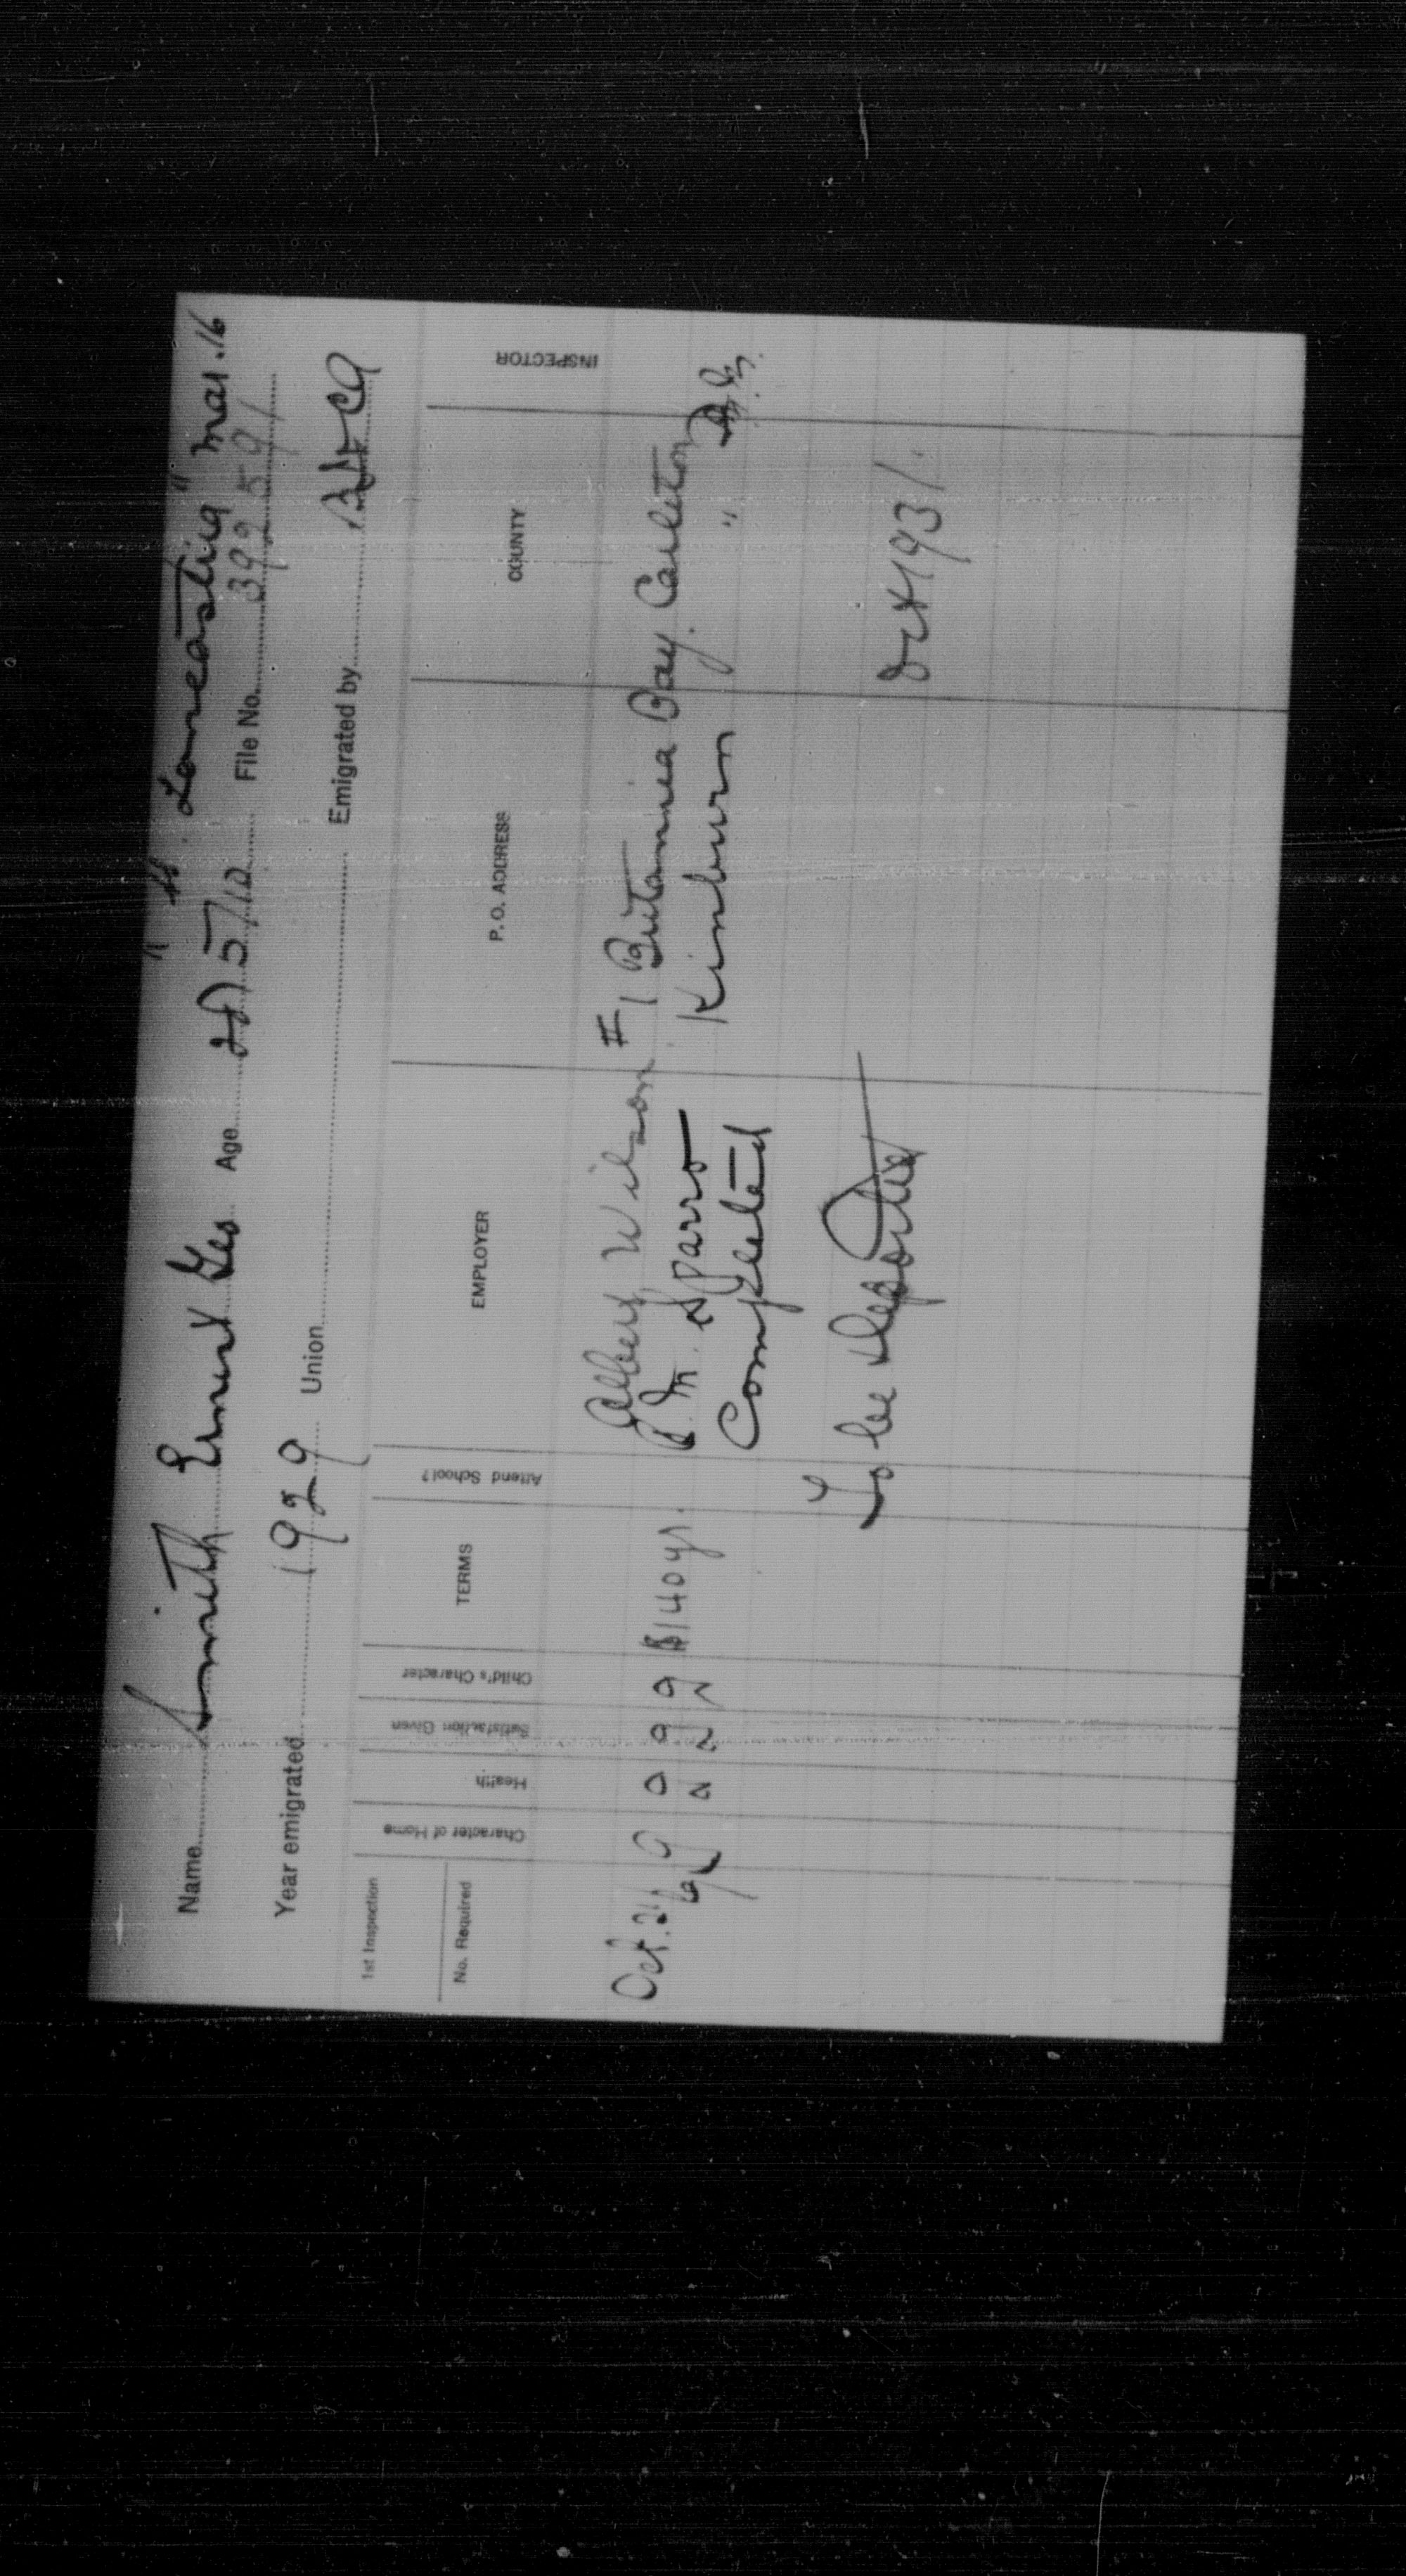 " "Lancastria" Mar. 16
Name Smith Ernest Geo Age 5/12 File No. 392591
Year emigrated 1929 Union Emigrated by
1st Inspection
No. Required Character of Home Health Satisfaction Given Child's Character TERMS Attend School? EMPLOYER P. O. ADDRESS COUNTY INSPECTOR
Oct. 21 $140 yr. Albert Wilson #1 Britannia Bay. Carleton
M. Sparro Kinburn "
Completed
To be deported Oct 1931.